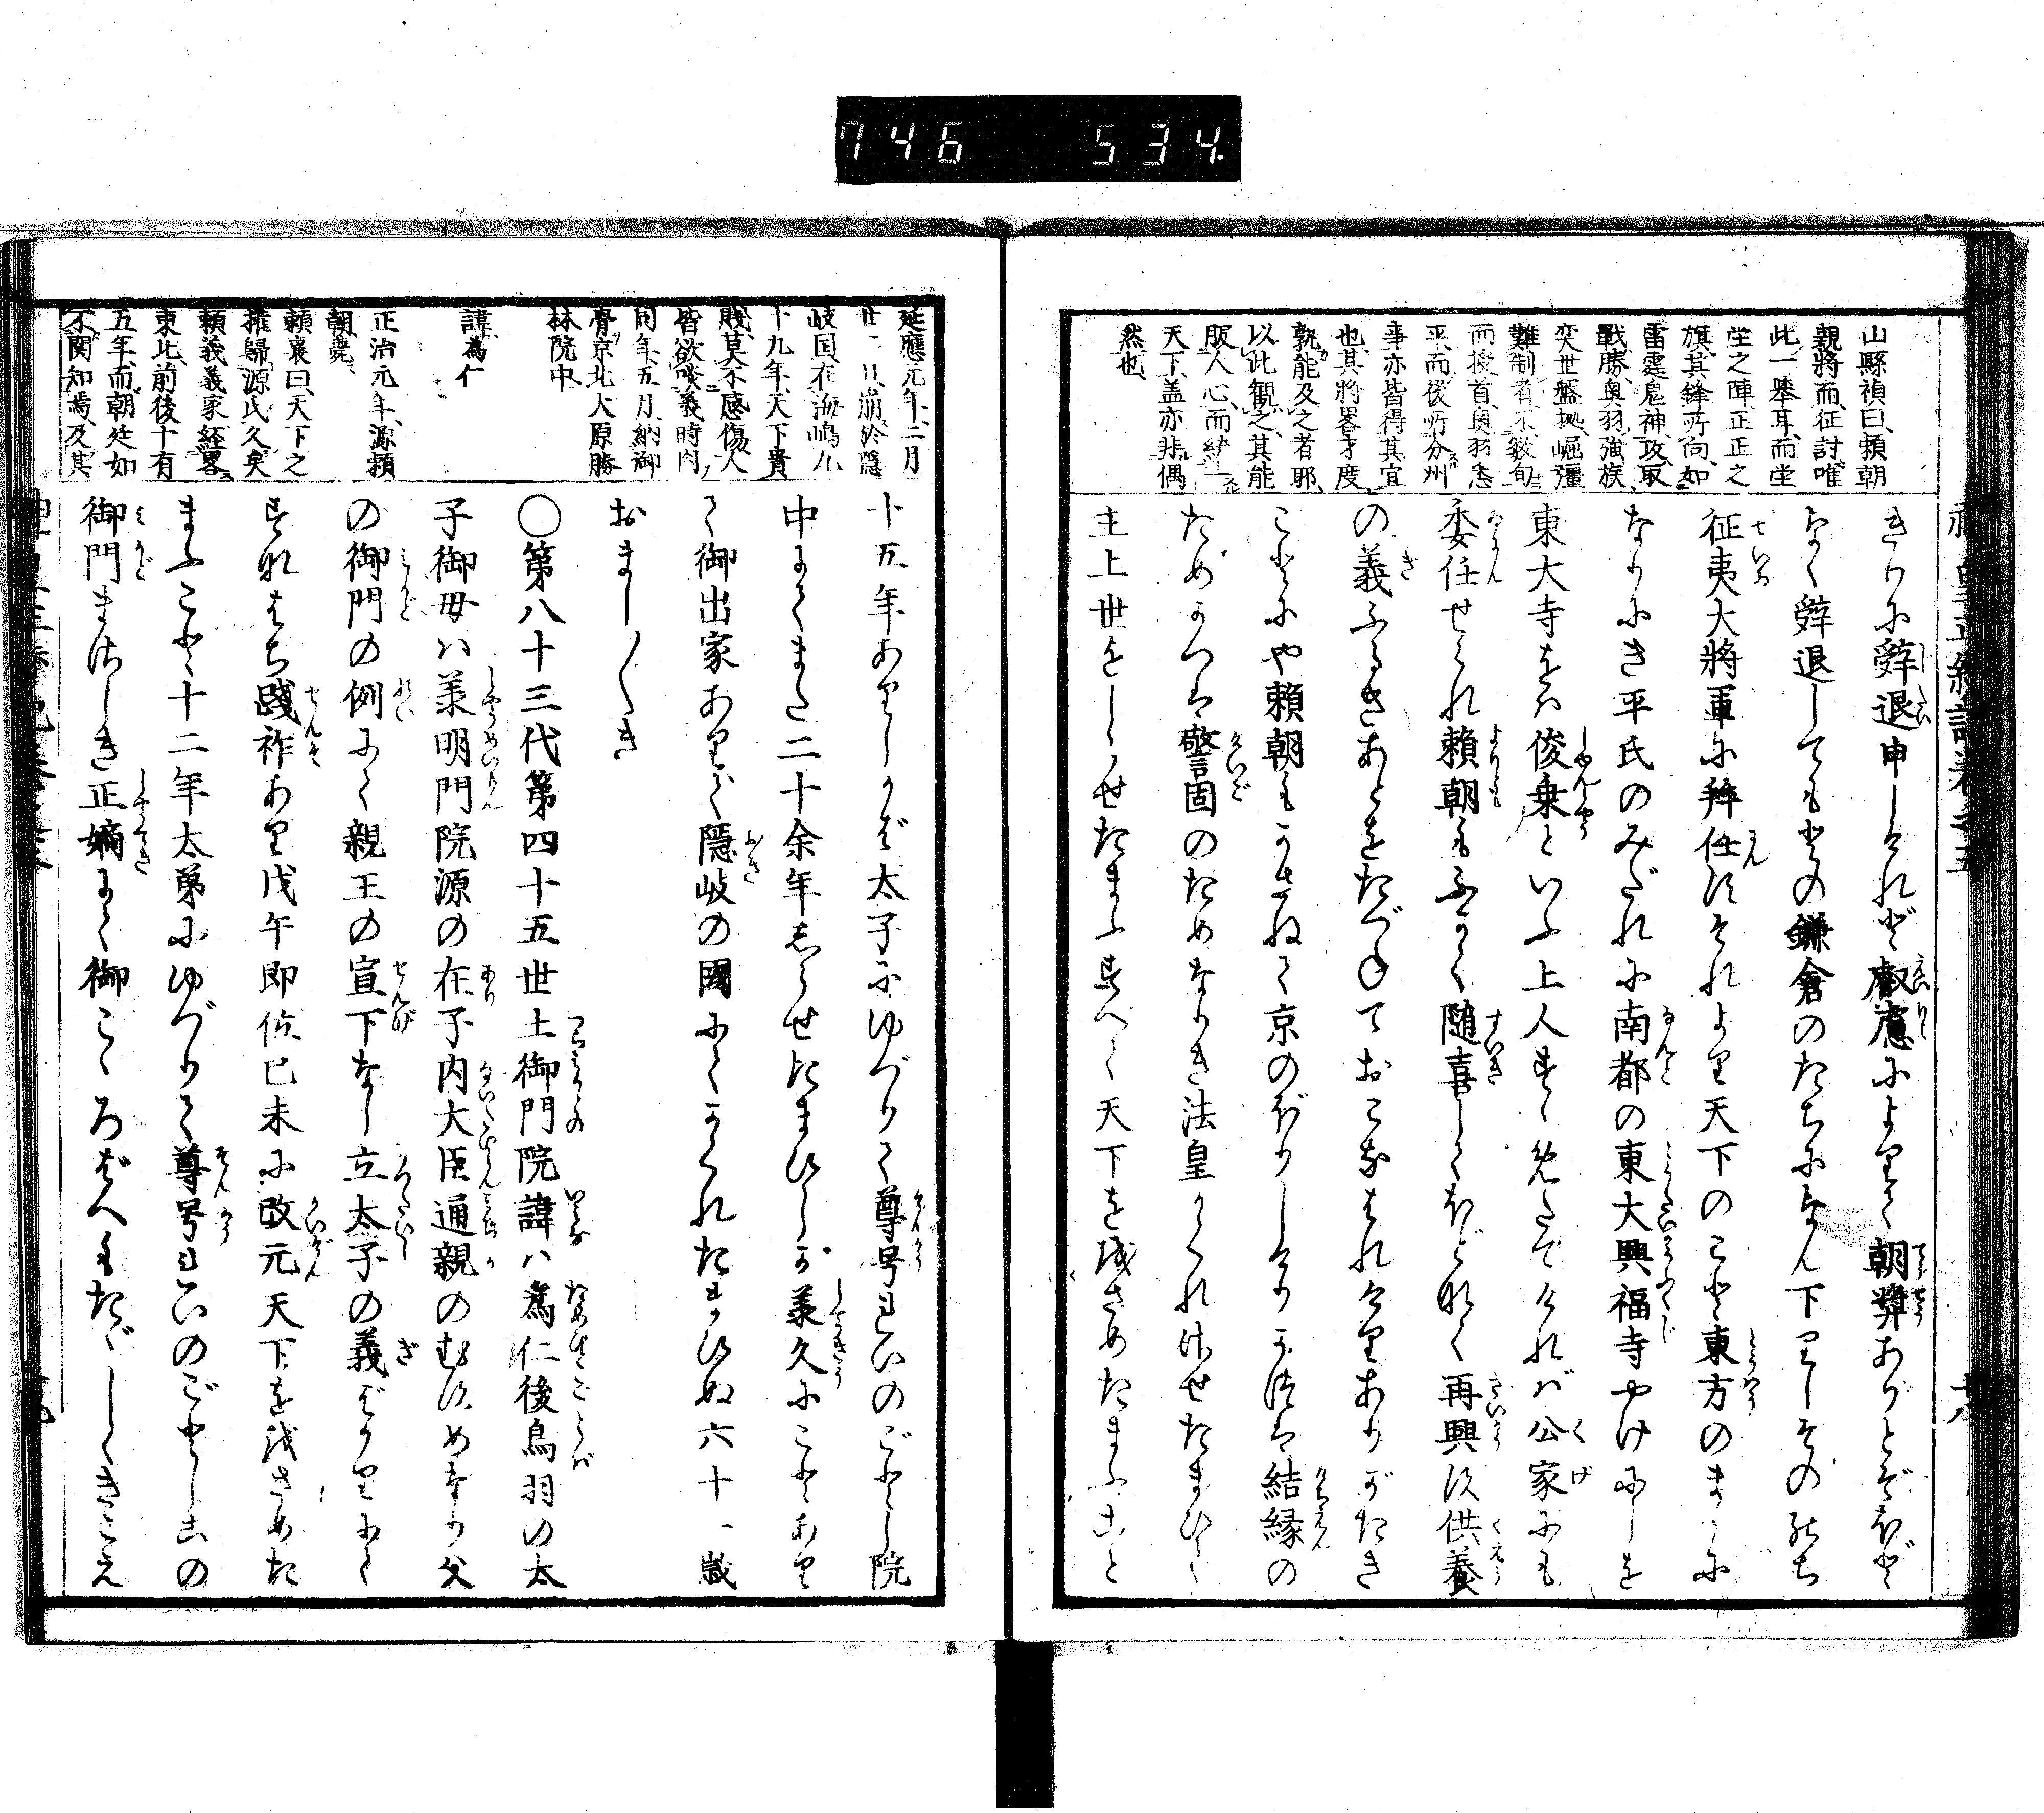 746 534.
山縣禎曰、頼朝
親將而、征討、唯
此一擧耳、而坐
堂之陣、正正之
旗、其鋒所向、如
雷霆鬼神、攻取
戰勝、奥羽強族、
奕世盤拠、崛彊
難制者、不數旬
而授首、奥羽悉
平、而後所分州
事、亦皆得其宜
也、其將畧才度、
孰能及之者耶、
以此観之、其能
服人心、而統一
天下、盖亦非偶
然也、
きりに辭退申しけれど叡慮によりて朝奨ありとぞほど
なく辭退してもとの鎌倉のたちになん下りしその後ち
征夷大將軍に拜任すそれより天下のこと東方のまゝに
なりにき平氏のみだれに南都の東大興福寺やけにしを
東大寺をば俊乗といふ上人すゝめたてければ公家にも
委任せられ頼朝もふかく随喜してほどなく再興す供養
の義ふるきあとをたづねておこなはれけるありがたき
ことにや頼朝もかさねて京のぼりしけりかつは結縁の
ためかつは警固のためなりき法皇かくれさせたまひて
主上世をしらせたまふすべて天下を治さめたまふこと
延應元年、二月
廿二日、崩於隠
岐国、在海嶋凡
十九年、天下貴
賤、莫不感傷、人
皆欲殘義時肉、
同年、五月、納御
骨京北大原勝
林院中、
諱爲仁
正治元年、源頼
朝薨、
頼襄曰、天下之
權、歸源氏久矣、
頼義義家、経畧
東北、前後十有
五年、而朝廷如
不関知焉、及其
十五年ありしかば太子にゆづりて尊号れいのごとし院
中にてまた二十余年しらせたまひしが羕久にことあり
て御出家ありて隠岐の國にてかくれたまひぬ六十一歳
おましく〳〵き
○第八十三代第四十五世土御門院諱ハ爲仁後鳥羽の太
子御母ハ羕明門院源の在子内大臣通親のむすめなり父
の御門の例にて親王の宣下なし立太子の義ばかりにて
すなはち踐祚あり戊午即位己未に改元天下を治さめた
まふこと十二年太弟にゆづりて尊号れいのごとしこの
御門まさしき正嫡にて御こゝろばへもたゞしくきこえ